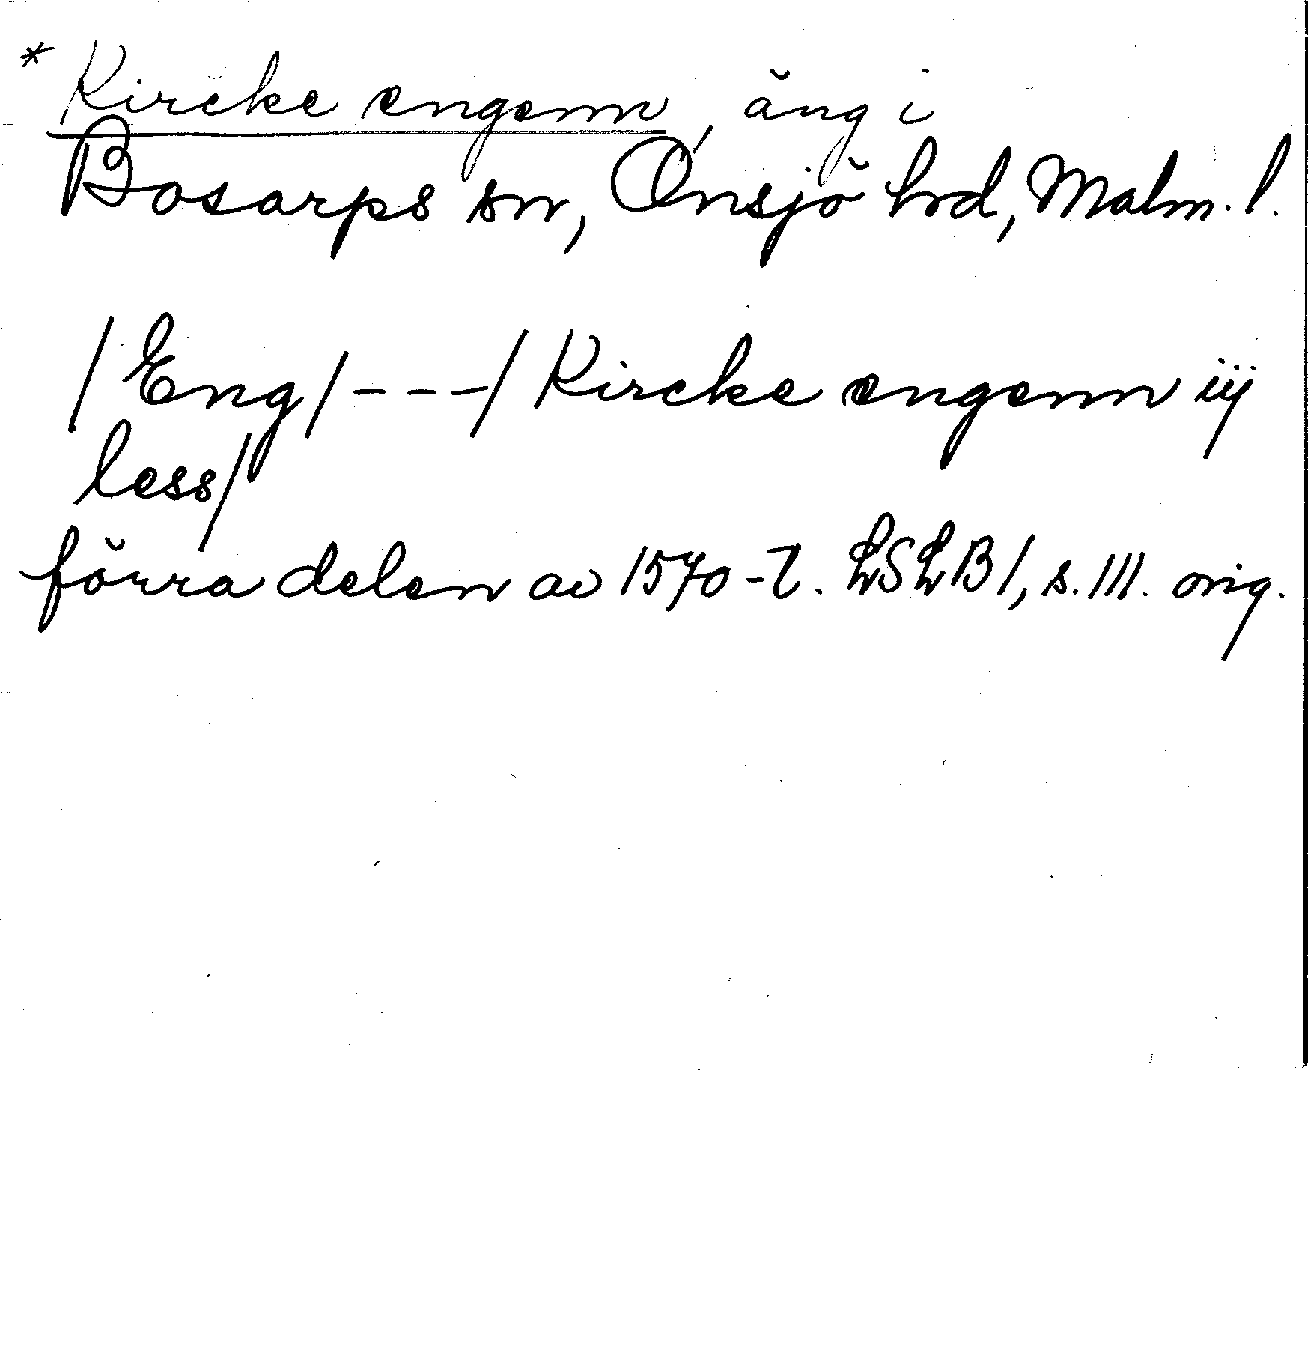 * Kircke engenn, äng i
Bosarps sn, Onsjö hd, Malm. l.
/Eng/---/Kircke engenn iij
less/
förra delen av 1570-t. LSLB1, s.111. orig.